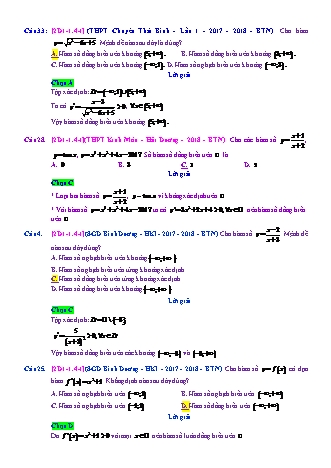 Câu 33: [2D1-1.4-1] (THPT Chuyên Thái Bình - Lần 1 - 2017 - 2018 - BTN) Cho hàm
y = √(x² − 6x + 5). Mệnh đề nào sau đây là đúng?
A. Hàm số đồng biến trên khoảng [5; +∞). B. Hàm số đồng biến trên khoảng [3; +∞).
C. Hàm số đồng biến trên khoảng (−∞; 1]. D. Hàm số nghịch biến trên khoảng (−∞; 3].
Lời giải
Chọn A
Tập xác định: D = (−∞; 1] ∪ [5; +∞)
Ta có y' = (x − 3)/√(x² − 6x + 5) > 0, ∀x ∈ (5; +∞)
Vậy hàm số đồng biến trên khoảng
Câu 28. [2D1-1.4-1] (THPT Kinh Môn - Hải Dương - 2018 - BTN) Cho các hàm số y = (x + 1)/(x + 2),
y = tan x, y = x³ + x² + 4x − 2017. Số hàm số đồng biến trên là
A. 0 B. 3 C. 1 D. 2
Lời giải
Chọn C
* Loại hai hàm số y = (x + 1)/(x + 2), y = tan x vì không xác định trên
* Với hàm số y = x³ + x² + 4x − 2017 ta có y' = 3x² + 2x + 4 > 0, nên hàm số đồng biến
trên
Câu 4. [2D1-1.4-1] (SGD Bình Dương - HKI - 2017 - 2018 - BTN) Cho hàm số y = (x − 2)/(x + 3). Mệnh đề
nào sau đây đúng?
A. Hàm số nghịch biến trên khoảng (−∞; +∞)
B. Hàm số nghịch biến trên từng khoảng xác định
C. Hàm số đồng biến trên từng khoảng xác định
D. Hàm số đồng biến trên khoảng (−∞; +∞)
Lời giải
Chọn C
Tập xác định:
y' = 5/(x + 3)² > 0, ∀x ∈ D
Vậy hàm số đồng biến trên các khoảng (−∞; −3) và (−3; +∞)
Câu 25. [2D1-1.4-1] (SGD Bình Dương - HKI - 2017 - 2018 - BTN) Cho hàm số y = f(x) có đạo
hàm f'(x) = x² + 1. Khẳng định nào sau đây đúng?
A. Hàm số nghịch biến trên B. Hàm số nghịch biến trên (−∞; +∞)
C. Hàm số nghịch biến trên (−1; 1) D. Hàm số đồng biến trên (−∞; +∞)
Lời giải
Chọn D
Do f'(x) = x² + 1 > 0 với mọi nên hàm số luôn đồng biến trên